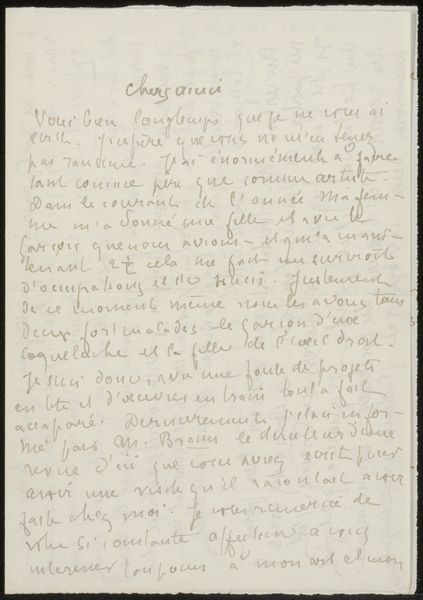 cher ami
Voici bien longtemps que je ne vous ai
écrit. J'espère que vous ne m'en tenez
pas rancune. J'ai énormément à faire
tant comme père que comme artiste.
Dans le courant de l'année ma fem-
me m'a donné une fille et avec le
garçon que nous avions et qui a main-
tenant 2½ cela me fait un surcroit
d'occupations et de soucis. Justement
de ce moment même nous les avons tous
deux fort malades le garçon d'une
coqueluche et la fille de l'oeil droit.
Je suis donc, avec une foule de projets
en tête et d'oeuvres en train tout à fait
accaparé. Dernièrement j'étais infor-
mé par M. Braun le directeur d'une
revue d'ici que vous aviez écrit pour
avoir une visite qu'il racontait avoir
faite chez moi. Je vous remercie de
votre si constante affection à vous
intéresser toujours à mon art et mon